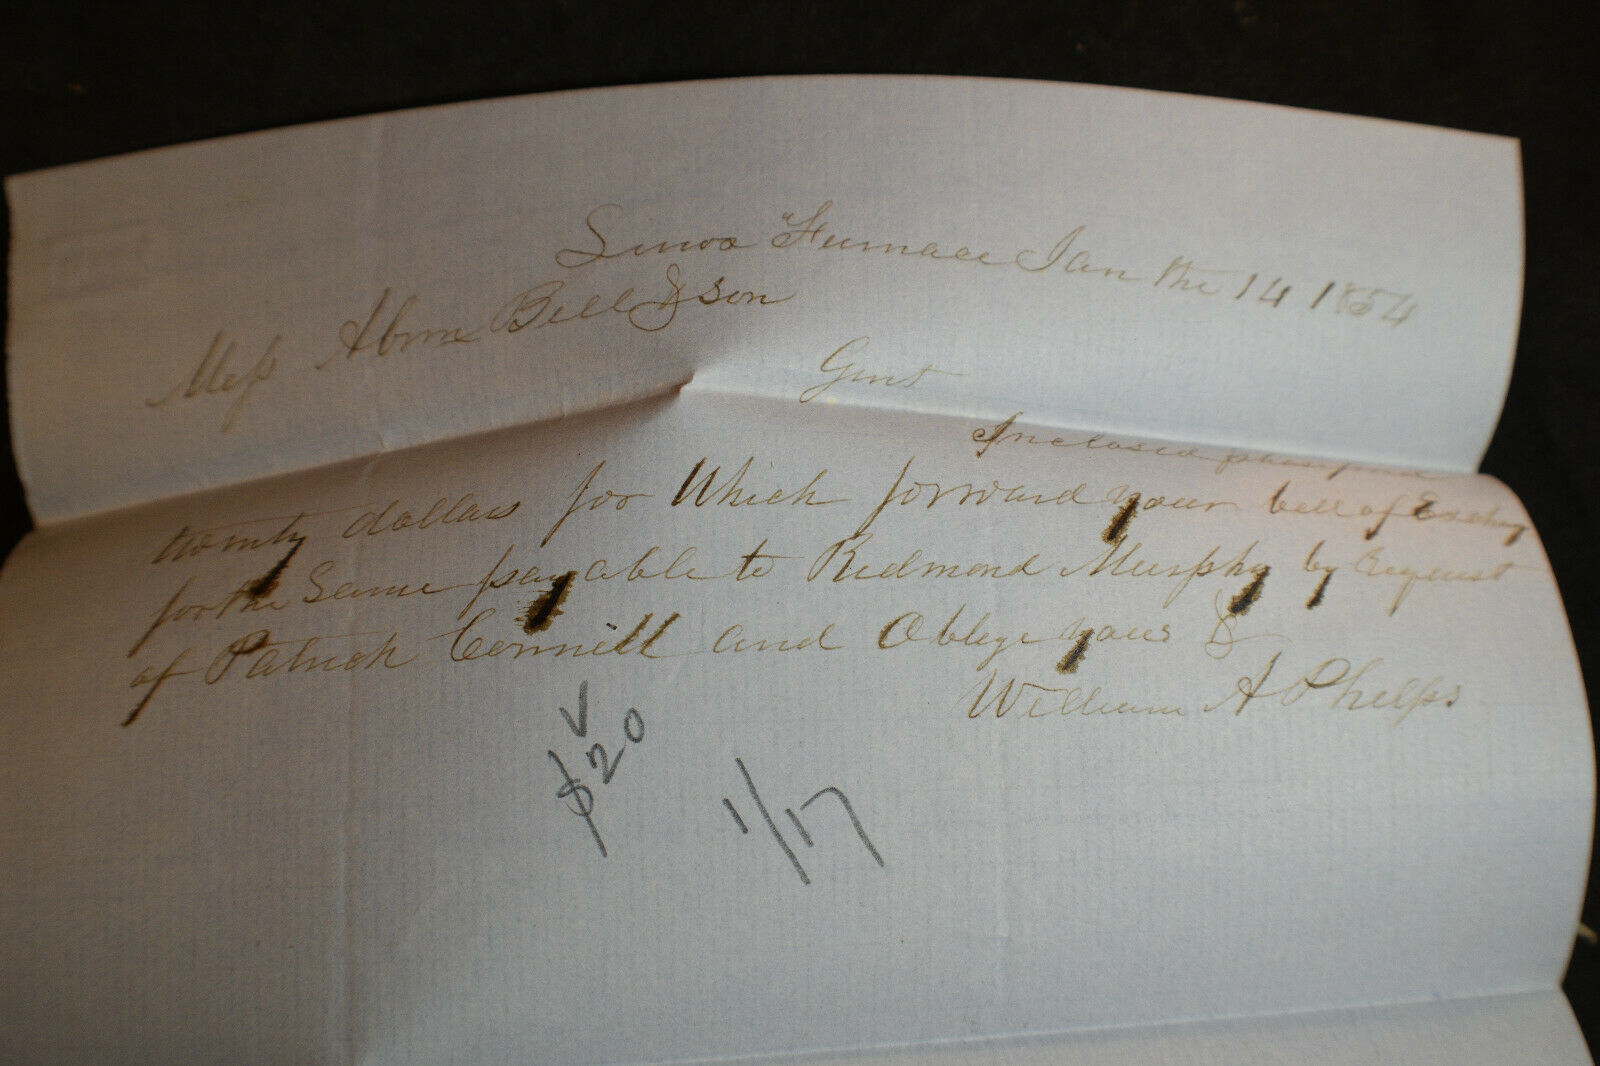 Furnace Jan the 14 1854
Mess Abrm Bell & son
Gent
Inclosed please find
twenty dollars for Which forward your bill of Exchang
for the Same payable to Redmond Murphy by Request
of Patrick Connell and Oblige yours &
William A Phelps
$20
1/17